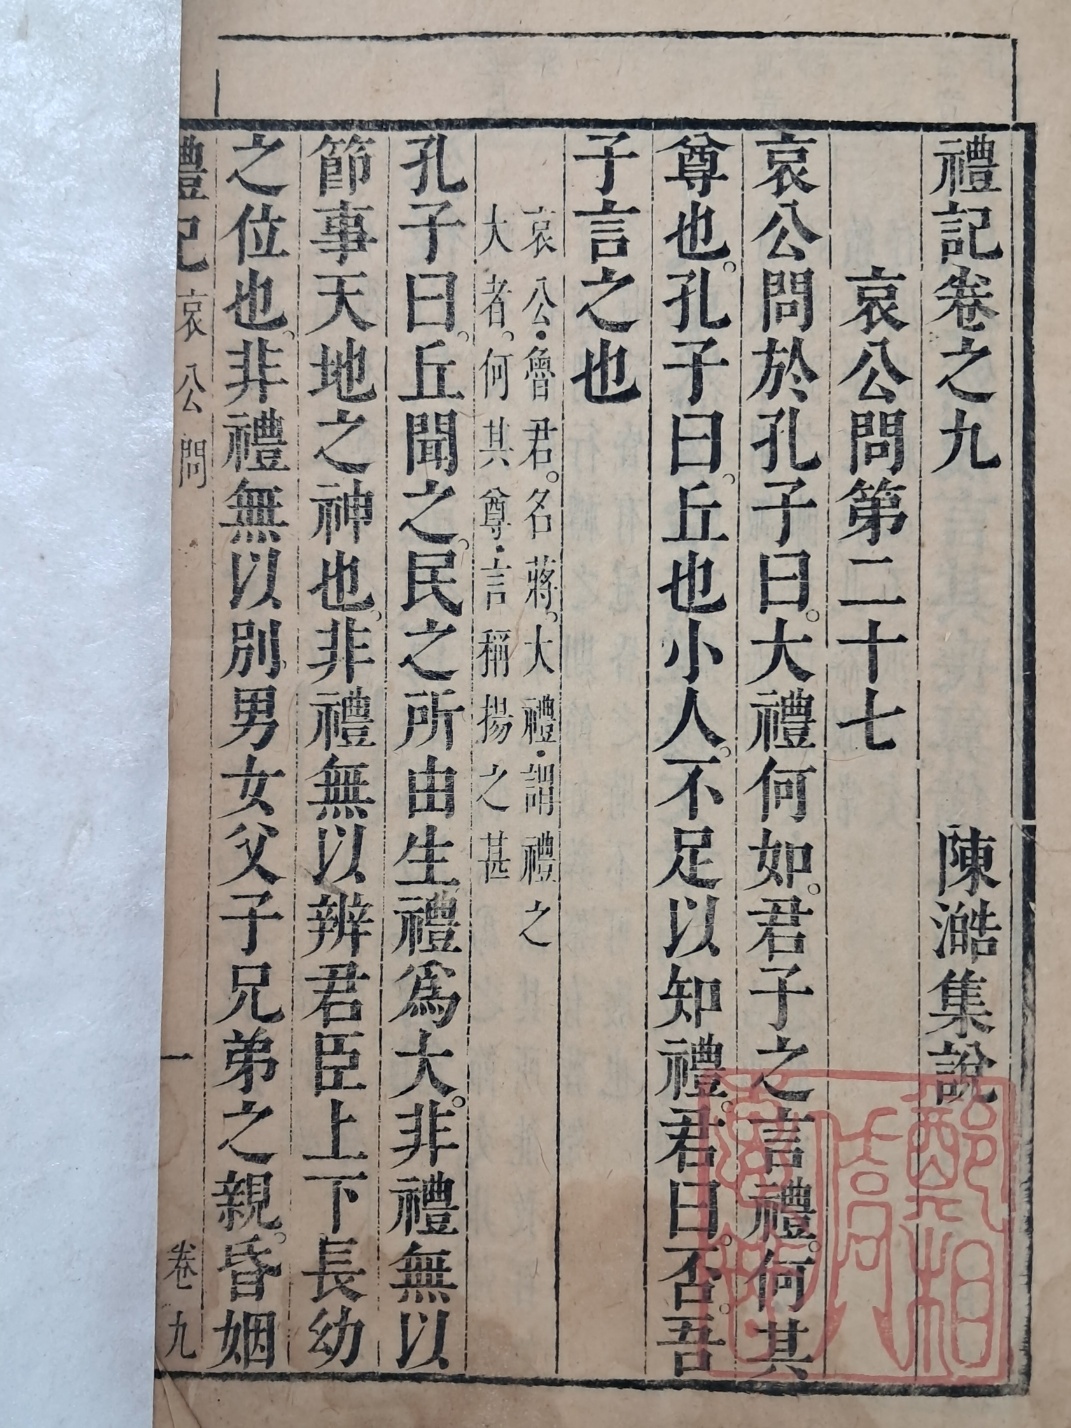 禮記卷之九 陳澔集說
哀公問第二十七
哀公問於孔子曰。大禮何如。君子之言禮。何其
尊也。孔子曰。丘也小人。不足以知禮。君曰。否。吾
子言之也
哀公。魯君。名蔣。大禮。謂禮之
大者。何其尊。言稱揚之甚
孔子曰。丘聞之。民之所由生禮爲大。非禮無以
節事天地之神也。非禮無以辨君臣上下長幼
之位也。非禮無以別男女父子兄弟之親。昏姻
禮記 哀公問 一 卷九